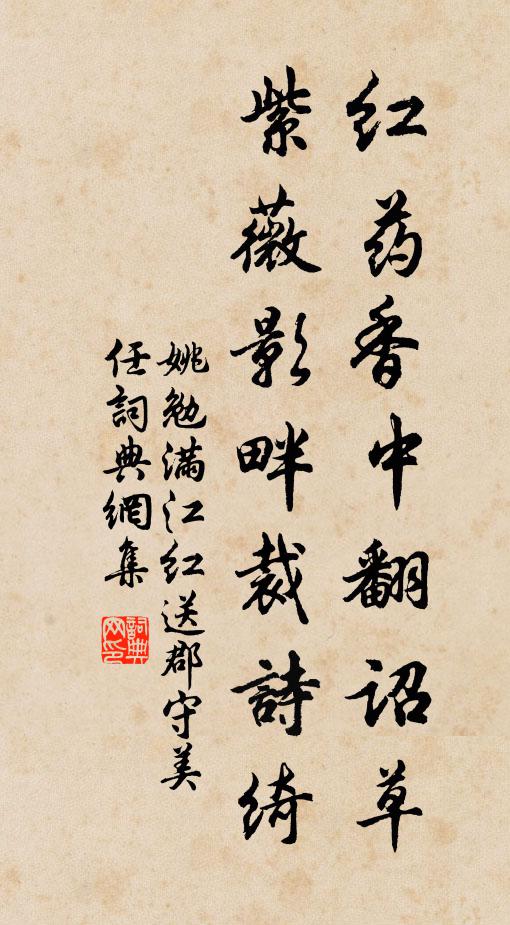 红药香中翻诏草
紫薇影畔裁詩绮
姚勉满江红送郡守美
任詞典網集
詞典網印